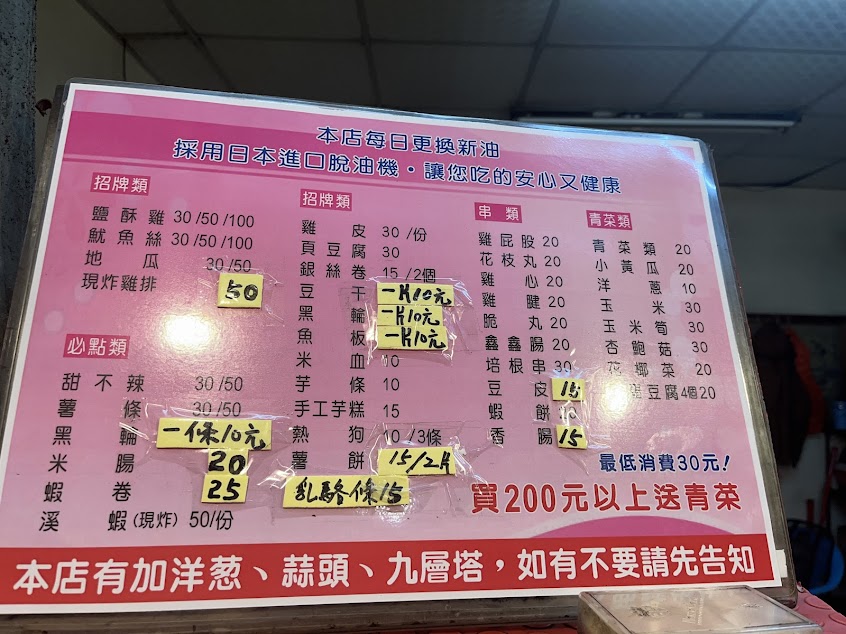 本店每日更換新油
採用日本進口脫油機・讓您吃的安心又健康
招牌類
鹽酥雞 30/50/100
魷魚絲 30/50/100
地瓜 30/50
現炸雞排 50
必點類
甜不辣 30/50
薯條 30/50
黑輪 一條10元
米腸 20
蝦卷 25
溪蝦(現炸) 50/份
招牌類
雞皮 30/份
百頁豆腐 30
銀絲卷 15/2個
豆干 一片10元
黑輪 一片10元
魚板 一片10元
米血 10
芋條 10
手工芋糕 15
熱狗 10/3條
薯餅 15/2片
乳酪條15
串類
雞屁股 20
花枝丸 20
雞心 20
雞腱 20
脆丸 20
鑫鑫腸 20
培根串 30
豆皮 15
蝦餅
香腸 15
青菜類
青菜類 20
小黃瓜 20
洋蔥 10
玉米 30
玉米筍 30
杏鮑菇 30
花椰菜 20
豆腐4個20
最低消費30元!
買200元以上送青菜
本店有加洋葱、蒜頭、九層塔,如有不要請先告知